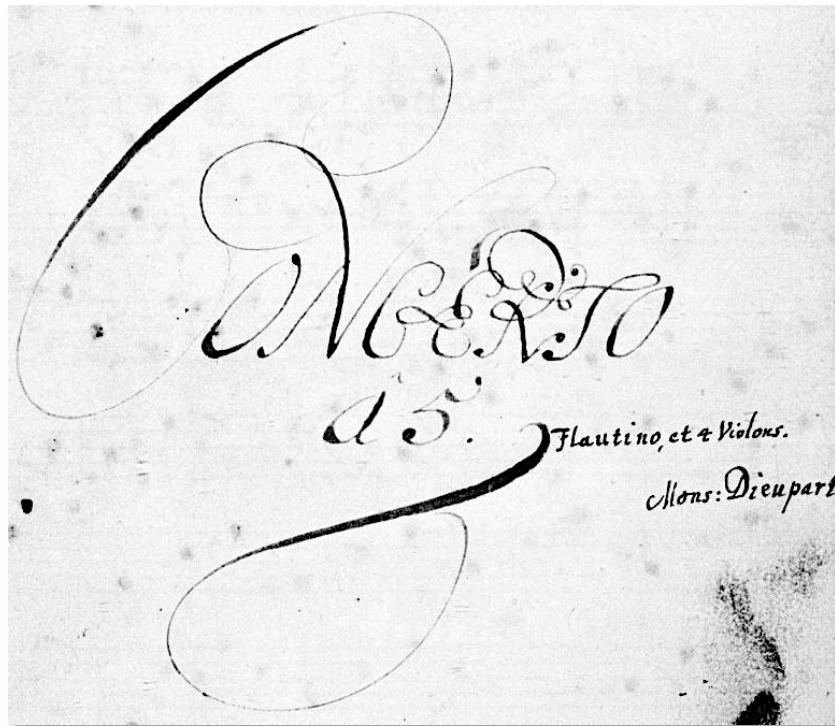 CONCERTO
à 5.
Flautino, et 4 Violons.
Mons: Dieupart